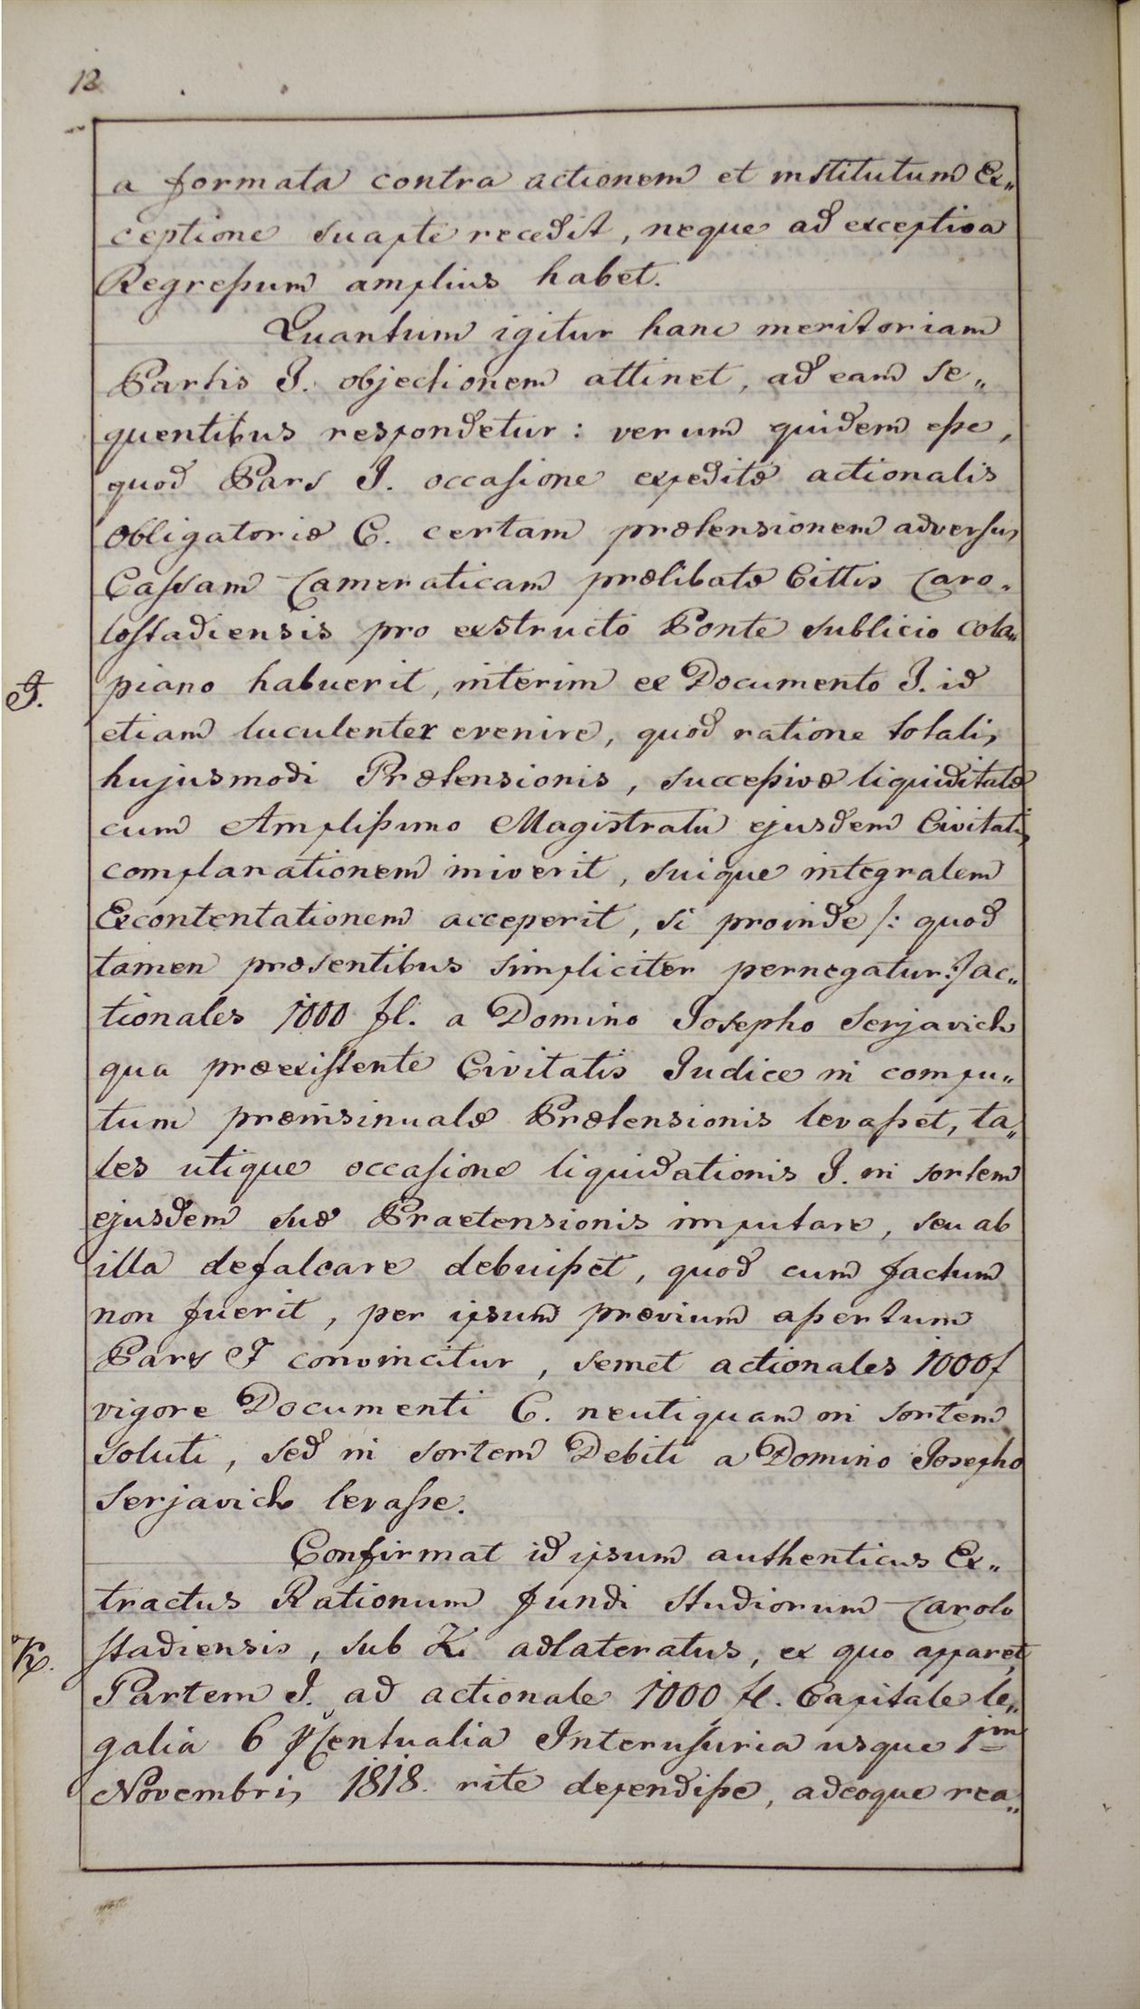 12
a formata contra actionem et institutum Ex„
ceptione suapte recedit, neque ad exceptiva
Regressum amplius habet.
Quantum igitur hanc meritoriam
Partis I. objectionem attinet, ad eam se„
quentibus respondetur: verum quidem esse,
quod Pars I. occasione expeditæ actionalis
obligatoriæ C. certam prætensionem adversus
Cassam Cameraticam prælibatæ Cittis Caro„
lostadiensis pro exstructo Ponte sublicio cola„
J.
piano habuerit, interim ex Documento J. id
etiam luculenter evenire, quod ratione totalis
hujusmodi Prætensionis, successive liquiditatæ
cum Amplissimo Magistratu ejusdem Civitatis
complanationem iniverit, suique integralem
Excontentationem acceperit, si proinde /: quod
tamen præsentibus simpliciter pernegatur :/ ac„
tionales 1000 fl. a Domino Josepho Serjavich
qua præexistente Civitatis Judice in compu„
tum præinsinuatæ Prætensionis levasset, ta„
les utique occasione liquidationis J. in sortem
ejusdem suæ Praetensionis imputare, seu ab
illa defalcare debuisset, quod cum factum
non fuerit, per ipsum prævium assertum
Pars I convincitur, semet actionales 1000 f
vigore Documenti C. neutiquam in sortem
soluti, sed in sortem Debiti a Domino Josepho
Serjavich levasse.
Confirmat id ipsum authenticus Ex„
tractus Rationum fundi Studiorum Carolo
K.
stadiensis, sub K. adlateratus, ex quo apparet,
Partem I. ad actionale 1000 fl. Capitale le„
galia 6 pCentualia Interusuria usque 1ma
Novembris 1818. rite dependisse, adeoque rea„